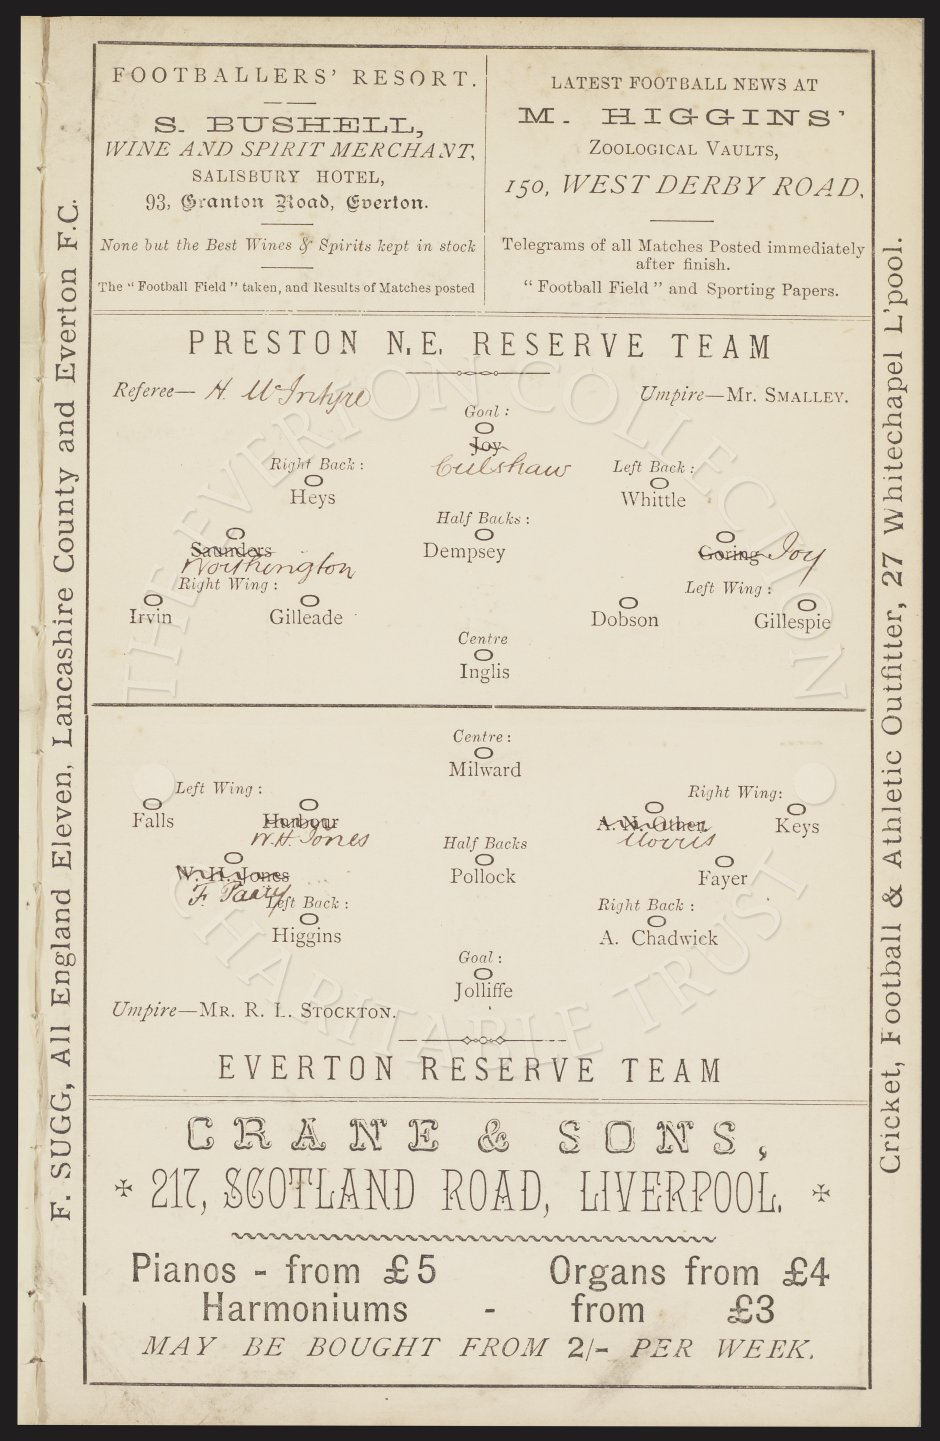 FOOTBALLERS' RESORT.
S. BUSHELL,
WINE AND SPIRIT MERCHANT,
SALISBURY HOTEL,
93, Granton Road, Everton.
None but the Best Wines & Spirits kept in stock
The "Football Field" taken, and Results of Matches posted
LATEST FOOTBALL NEWS AT
M. HIGGINS'
ZOOLOGICAL VAULTS,
150, WEST DERBY ROAD,
Telegrams of all Matches Posted immediately
after finish.
"Football Field" and Sporting Papers.
F. SUGG, All England Eleven, Lancashire County and Everton F.C.
Cricket, Football & Athletic Outfitter, 27 Whitechapel L'pool.
PRESTON N.E. RESERVE TEAM
Referee— H. McIntyre
Umpire—MR. SMALLEY.
Goal:
Joy
Culshaw
Right Back:
Heys
Left Back:
Whittle
Half Backs:
Saunders
Worthington
Dempsey
Goring Joy
Right Wing:
Left Wing:
Irvin Gilleade Dobson Gillespie
Centre
Inglis
Centre:
Milward
Left Wing:
Right Wing:
Falls Harbour A. N. Other Keys
W.H. Jones Morris
Half Backs
W. H. Jones Pollock Fayer
F. Parry
Left Back:
Right Back:
Higgins A. Chadwick
Goal:
Jolliffe
Umpire—MR. R. L. STOCKTON.
EVERTON RESERVE TEAM
THE EVERTON COLLECTION
CHARITABLE TRUST
CRANE & SONS,
217, SCOTLAND ROAD, LIVERPOOL.
Pianos - from £5 Organs from £4
Harmoniums - from £3
MAY BE BOUGHT FROM 2/- PER WEEK.